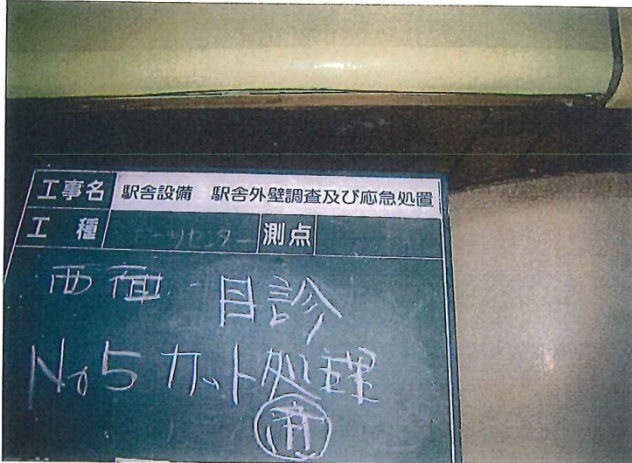 工事名 駅舎設備 駅舎外壁調査及び応急処置
工種 測点
西面 目診
No5 カット処理